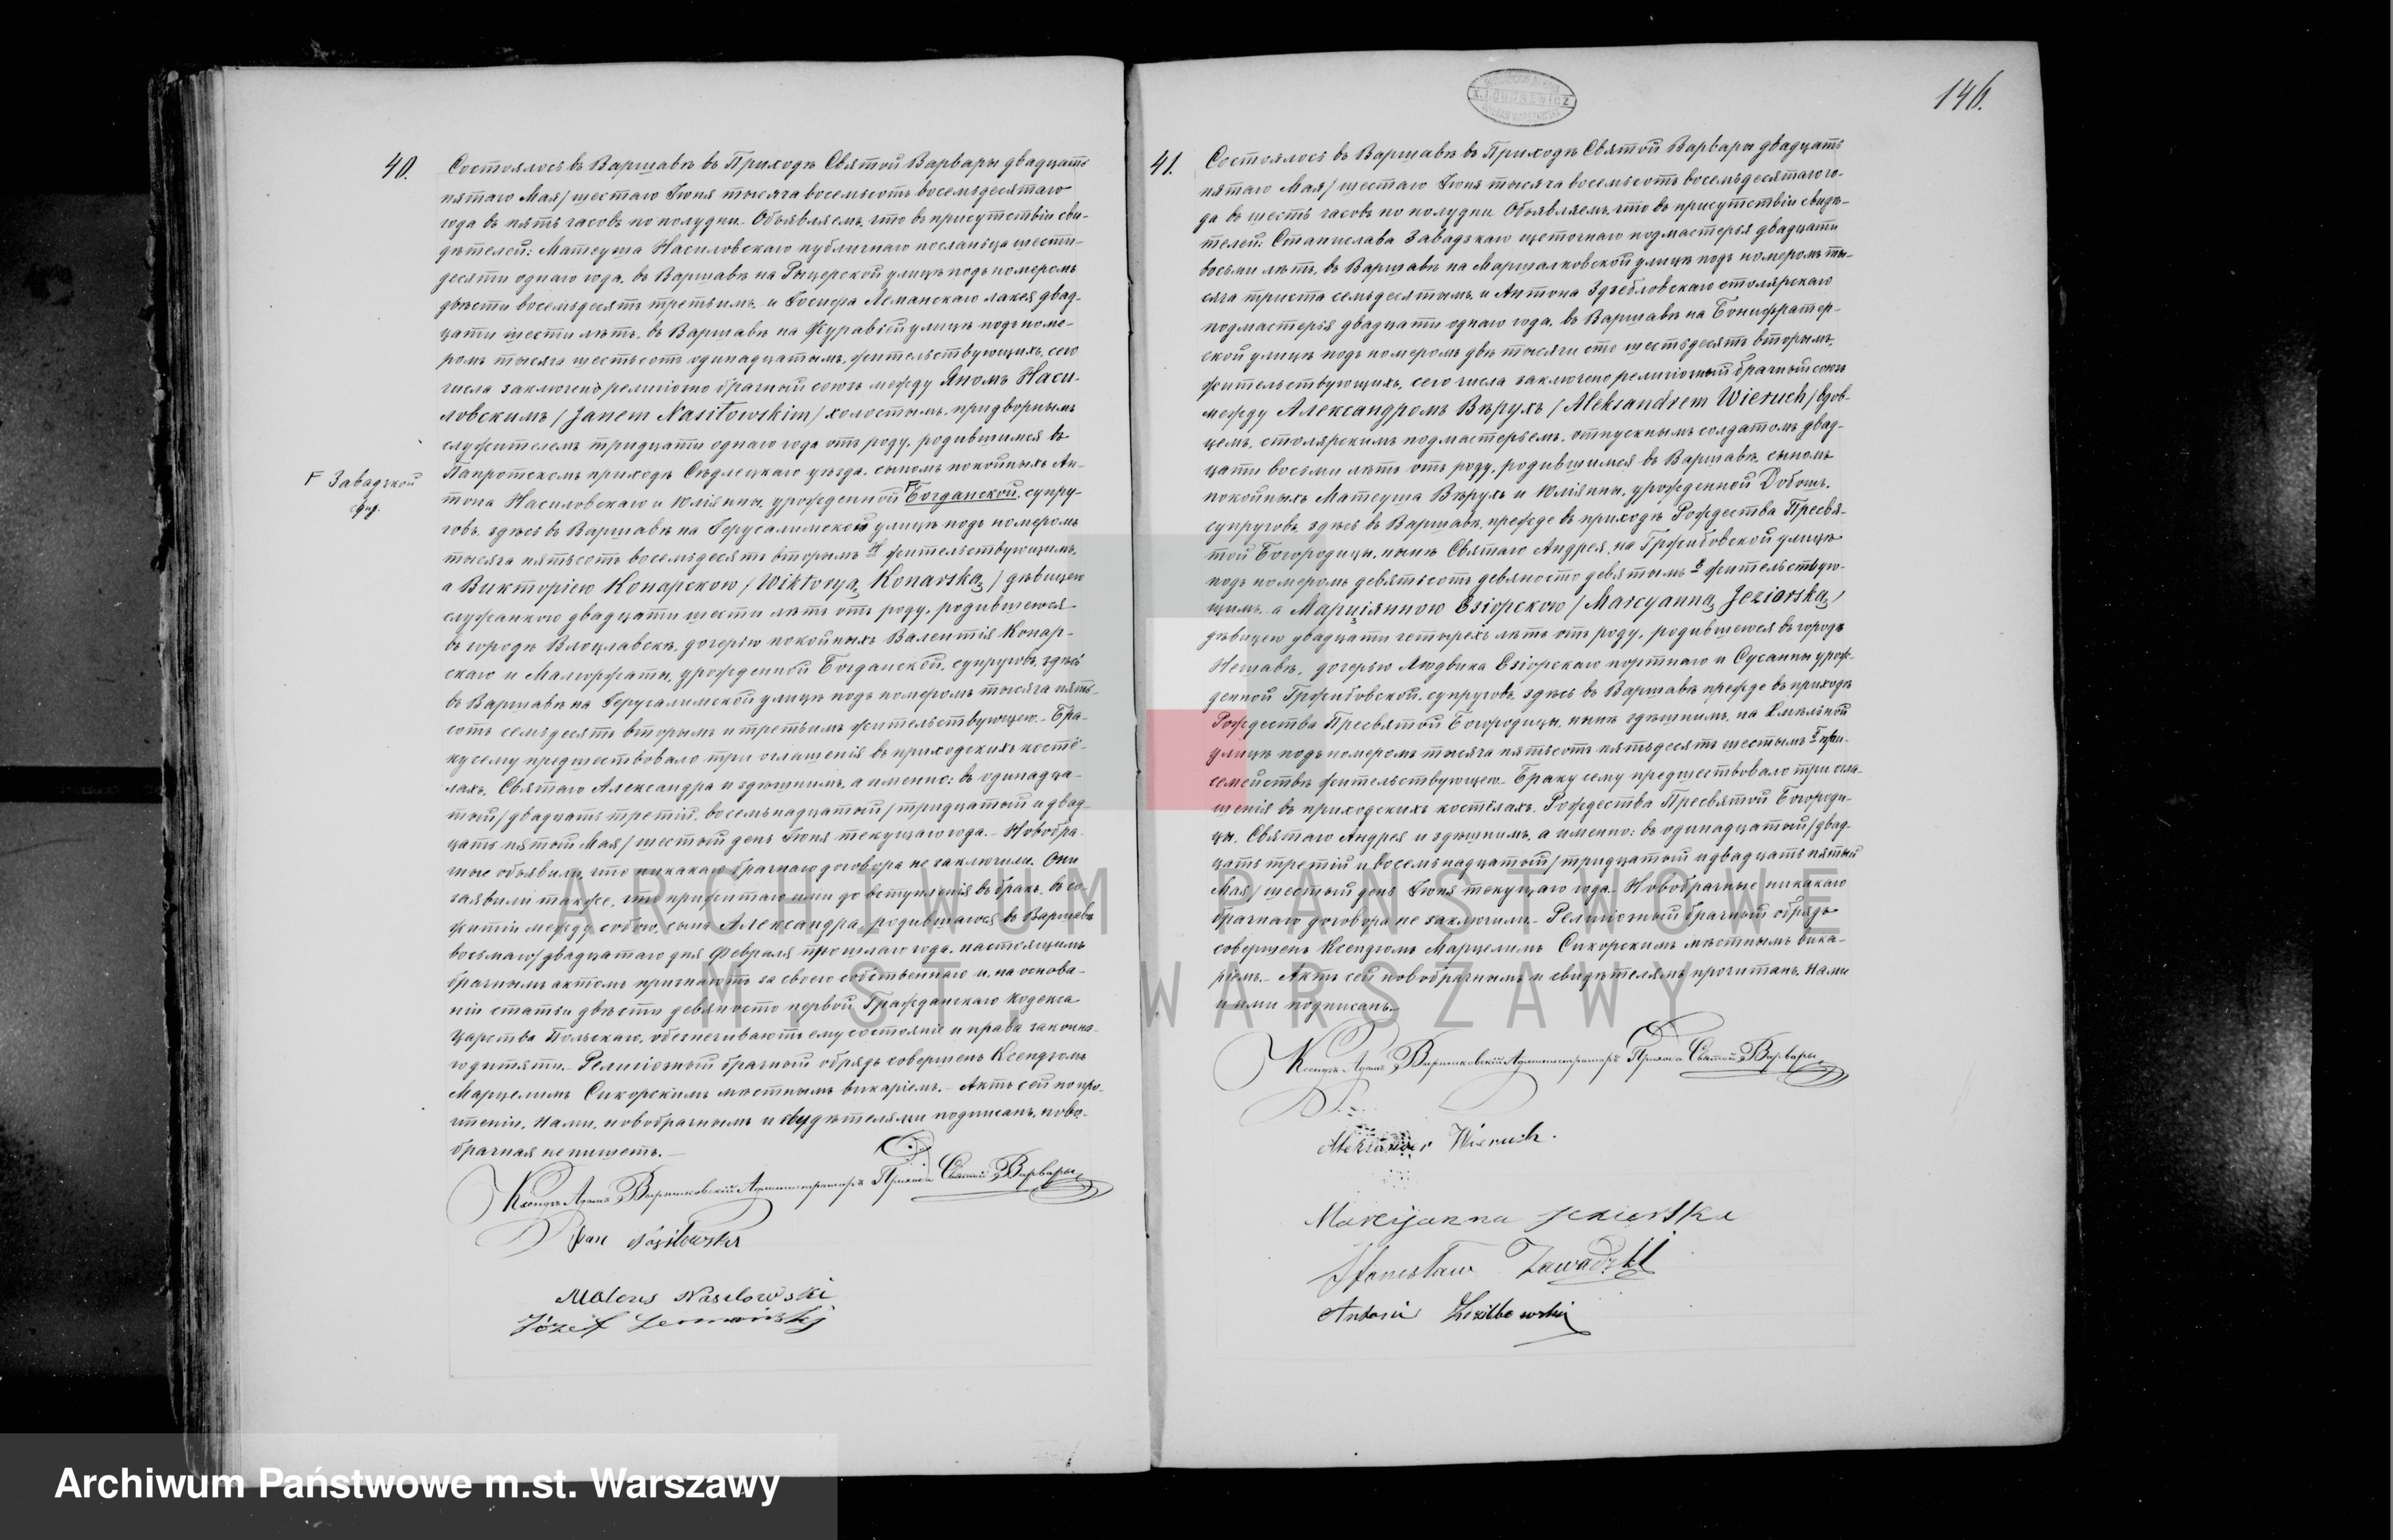 146.
40.
Состоялось въ Варшавѣ въ Приходѣ Святой Варвары двадцать
пятаго Мая/шестаго Іюня тысяча восемьсотъ восемьдесятаго
года въ пять часовъ по полудни. Объявляемъ, что въ присутствіи сви-
дѣтелей: Матеуша Насиловскаго публичнаго посланца шести-
десяти однаго года, въ Варшавѣ на Рыцерской улицѣ подъ номеромъ
двѣсти восемьдесятъ третьимъ, и Іосифа Леманскаго лакея двад-
цати шести лѣтъ, въ Варшавѣ на Журавьей улицѣ подъ номе-
ромъ тысяча шестьсотъ одинадцатымъ, жительствующихъ, сего
числа заключенъ религіозно брачный союзъ между Яномъ Наси-
ловскимъ /Janem Nasiłowskim/ холостымъ, придворнымъ
служителемъ тридцати однаго года отъ роду, родившимся въ
Папротскомъ приходѣ Сѣдлецкаго уѣзда, сыномъ покойныхъ Ан-
тона Насиловскаго и Юліянны, урожденной Богданской, супру-
F Завадзкой
говъ, здѣсь въ Варшавѣ на Іерусалимской улицѣ подъ номеромъ
тысяча пятьсотъ восемьдесятъ вторымъ жительствующимъ,
а Викторіею Конарскою /Wiktoryą Konarską/ дѣвицею
служанкою двадцати шести лѣтъ отъ роду, родившеюся
въ городѣ Влоцлавскѣ, дочерью покойныхъ Валентія Конар-
скаго и Малгоржаты, урожденной Богданской, супруговъ, здѣсь
въ Варшавѣ на Іерусалимской улицѣ подъ номеромъ тысяча пять-
сотъ семьдесятъ вторымъ и третьимъ жительствующею. - Бра-
ку сему предшествовало три оглашенія въ приходскихъ костё-
лахъ, Святаго Александра и здѣшнимъ, а именно: въ одинадца-
тый/двадцать третій, восемьнадцатый/тридцатый и двад-
цать пятый Мая/шестый день Іюня текущаго года. - Новобра-
чные объявили, что никакаго брачнаго договора не заключили. Они
заявили также, что прижитаго ими до вступленія въ бракъ, въ со-
житіи между собою, сына Александра, родившагося въ Варшавѣ
восьмаго/двадцатаго дня Февраля прошлаго года, настоящимъ
брачнымъ актомъ признаютъ за своего собственнаго и, на основа-
ніи статьи двѣсти девяносто первой Гражданскаго Кодекса
Царства Польскаго, обеспечиваютъ ему состояніе и права законна-
го дитяти. - Религіозный брачный обрядъ совершенъ Ксендзомъ
Марцелимъ Сикорскимъ мѣстнымъ викаріемъ. - Актъ сей по про-
чтеніи, Нами, новобрачнымъ и свидѣтелями подписанъ, ново-
брачная не пишетъ. -
Ксендзъ Адамъ Администраторъ Прихода Святой Варвары
Jan Nasiłowski
Mateus Nasilowski
Józef Lemański
41.
Состоялось въ Варшавѣ въ Приходѣ Святой Варвары двадцать
пятаго Мая/шестаго Іюня тысяча восемьсотъ восемьдесятаго го-
да въ шесть часовъ по полудни. Объявляемъ, что въ присутствіи свидѣ-
телей: Станислава Завадзкаго щеточнаго подмастерья двадцати
восьми лѣтъ, въ Варшавѣ на Маршалковской улицѣ подъ номеромъ ты-
сяча триста семьдесятымъ, и Антона столярскаго
подмастерья двадцати однаго года, въ Варшавѣ на Бонифратер-
ской улицѣ подъ номеромъ двѣ тысячи сто шестьдесятъ вторымъ,
жительствующихъ, сего числа заключено религіозный брачный союзъ
между Александромъ Вѣрухъ /Aleksandrem Wieruch/ вдов-
цемъ, столярскимъ подмастерьемъ, отпускнымъ солдатомъ двад-
цати восьми лѣтъ отъ роду, родившимся въ Варшавѣ, сыномъ
покойныхъ Матеуша Вѣрухъ и Юліянны, урожденной Добошъ,
супруговъ, здѣсь въ Варшавѣ, прежде въ приходѣ Рождества Пресвя-
той Богородицы, нынѣ Святаго Андрея, на Гржибовской улицѣ
подъ номеромъ девятьсотъ девяносто девятымъ жительствую-
щимъ, а Марціянною Езіорскою /Marcyanną Jeziorską/
дѣвицею двадцати четырехъ лѣтъ отъ роду, родившеюся въ городѣ
Нешавѣ, дочерью Людвика Езіорскаго портнаго и Сусанны урож-
денной Гржибовской, супруговъ, здѣсь въ Варшавѣ прежде въ приходѣ
Рождества Пресвятой Богородицы, нынѣ здѣшнимъ, на Хмѣльной
улицѣ подъ номеромъ тысяча пятьсотъ пятьдесятъ шестымъ при
семействѣ жительствующею. - Браку сему предшествовало три огла-
шенія въ приходскихъ костёлахъ, Рождества Пресвятой Богороди-
цы, Святаго Андрея и здѣшнимъ, а именно: въ одинадцатый/двад-
цать третій и восемьнадцатый/тридцатый и двадцать пятый
Мая/шестый день Іюня текущаго года. - Новобрачные никакаго
брачнаго договора не заключили. - Религіозный брачный обрядъ
совершенъ Ксендзомъ Марцелимъ Сикорскимъ мѣстнымъ вика-
ріемъ. - Актъ сей новобрачнымъ и свидѣтелямъ прочитанъ, Нами
и ими подписанъ. -
Ксендзъ Адамъ Администраторъ Прихода Святой Варвары
Aleksander Wieruch.
Marcyanna Jeziorska
Stanisław Zawadzki
Antoni
ARCHIWUM PAŃSTWOWE
M.ST. WARSZAWY
Archiwum Państwowe m.st. Warszawy